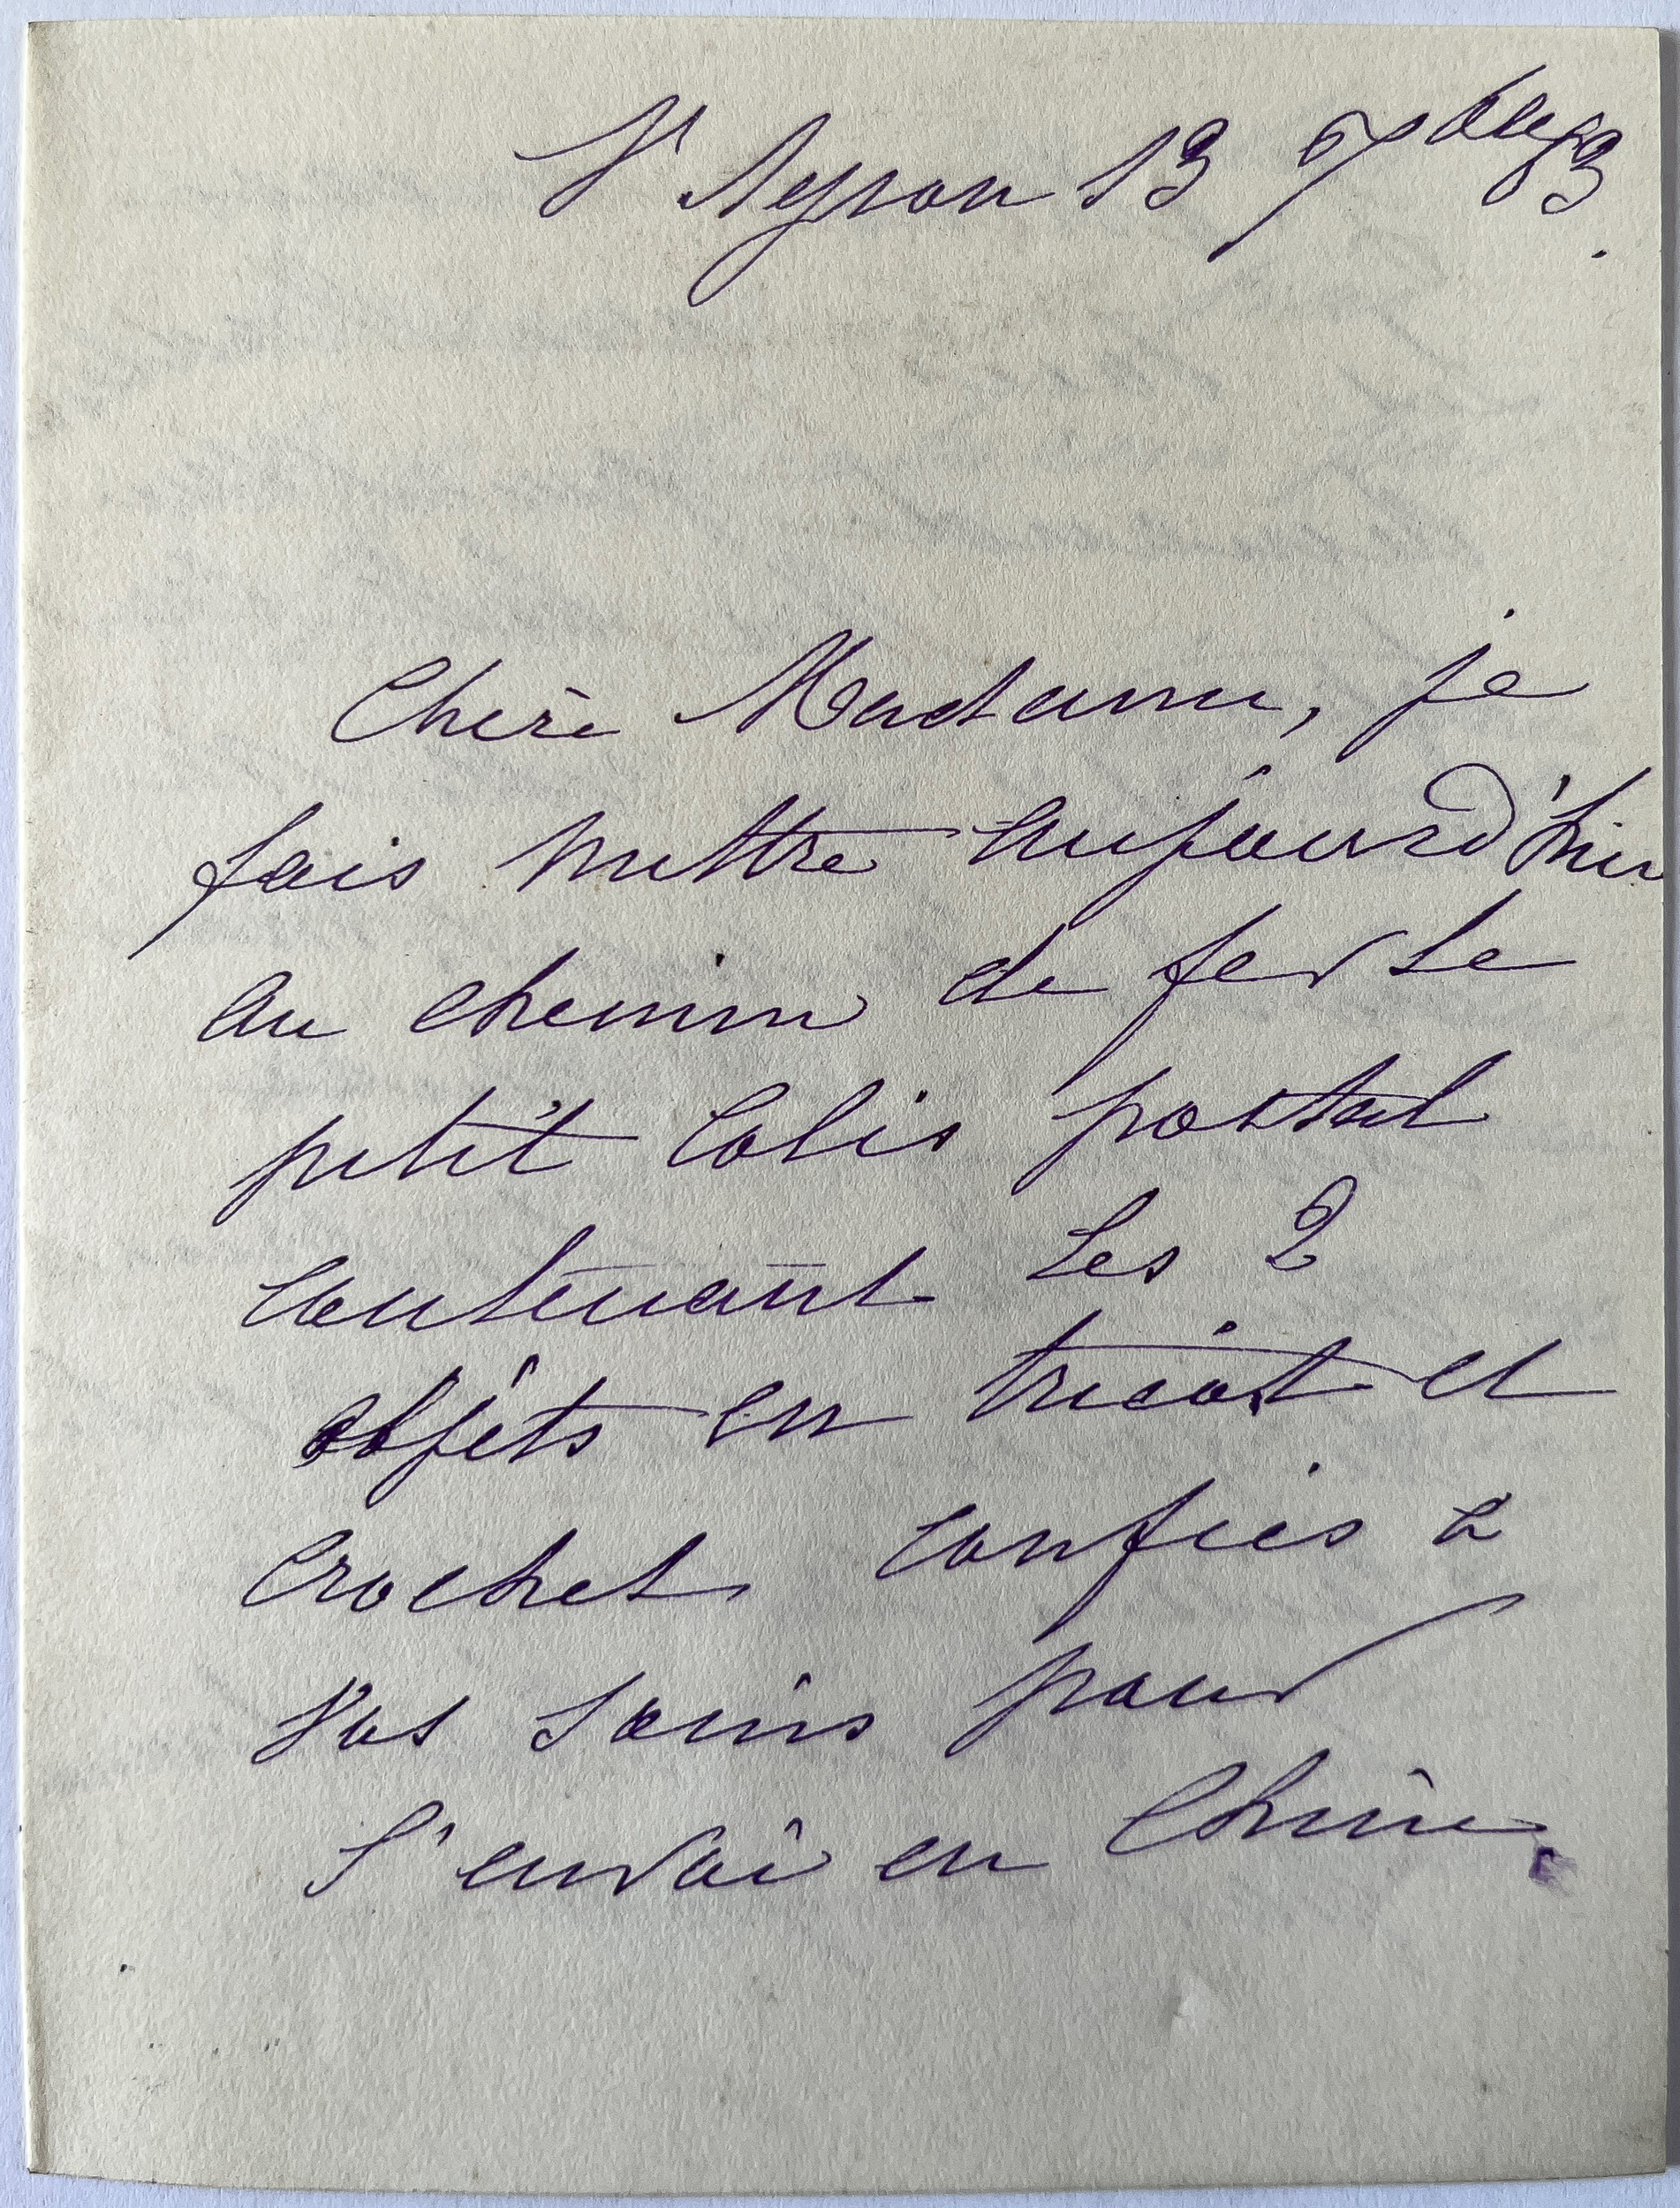 St Agnan 13 9bre 93.
Chère Madame, je
fais mettre aujourd'hui
au chemin de fer le
petit Colis postal
contenant les 2
objets en tricot et
Crochet confiés à
vos soins pour
l'envoi en Chine.